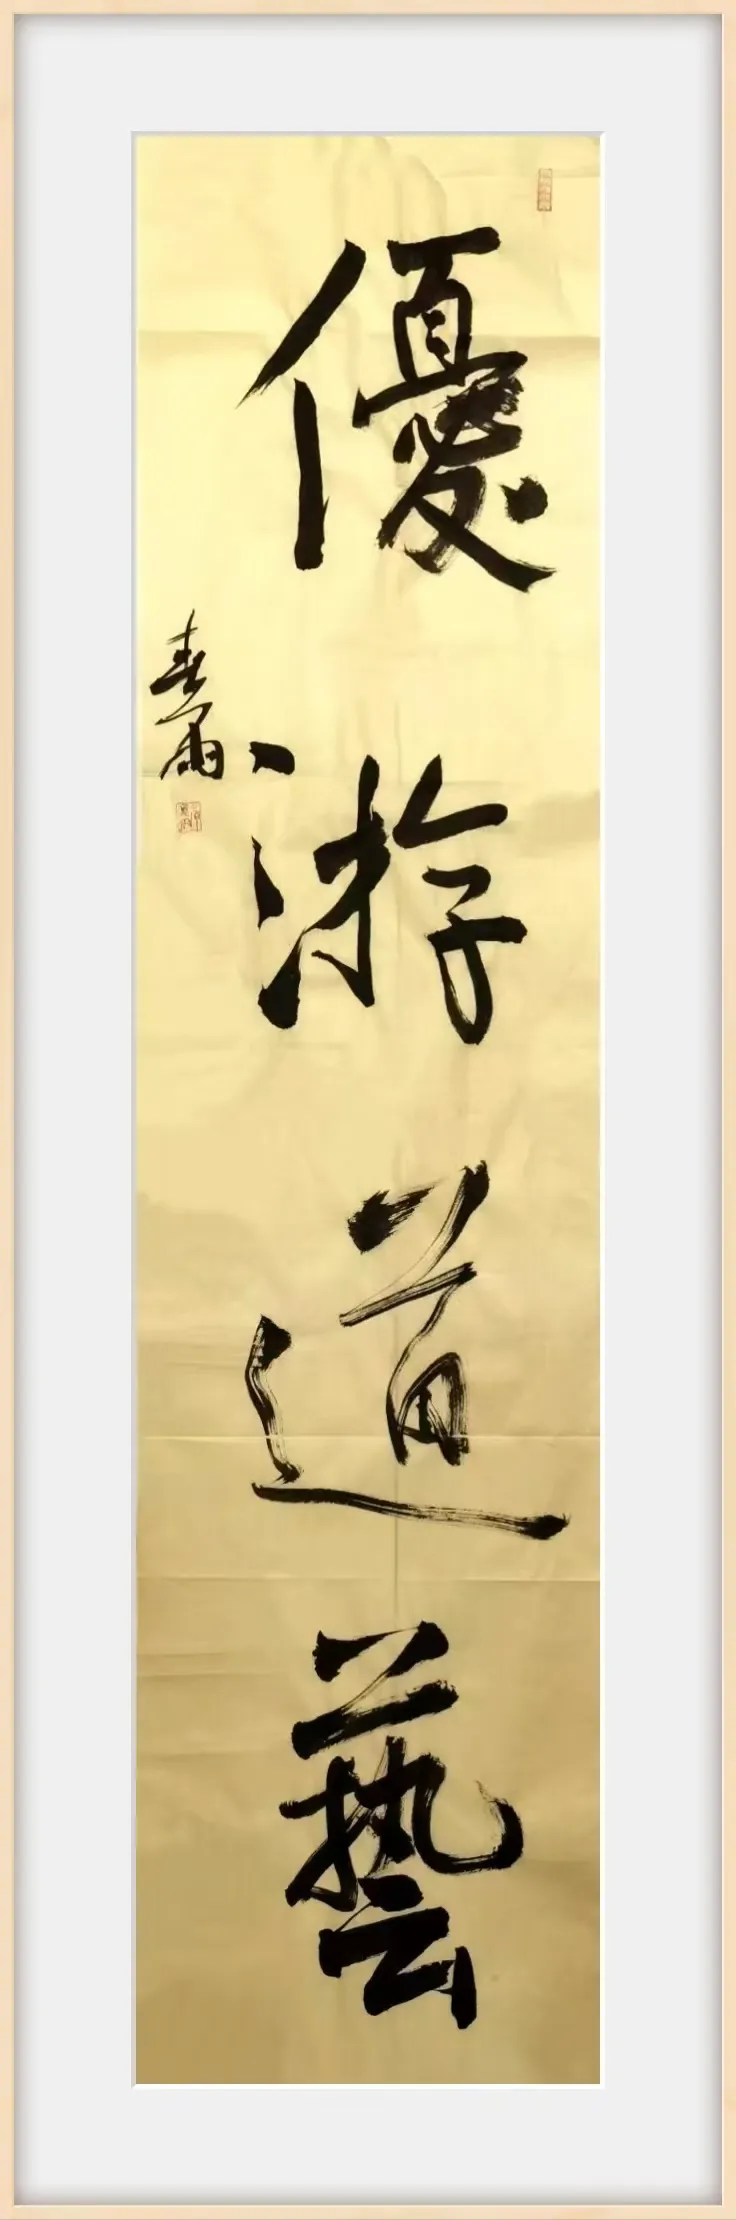 優游道藝
春雨